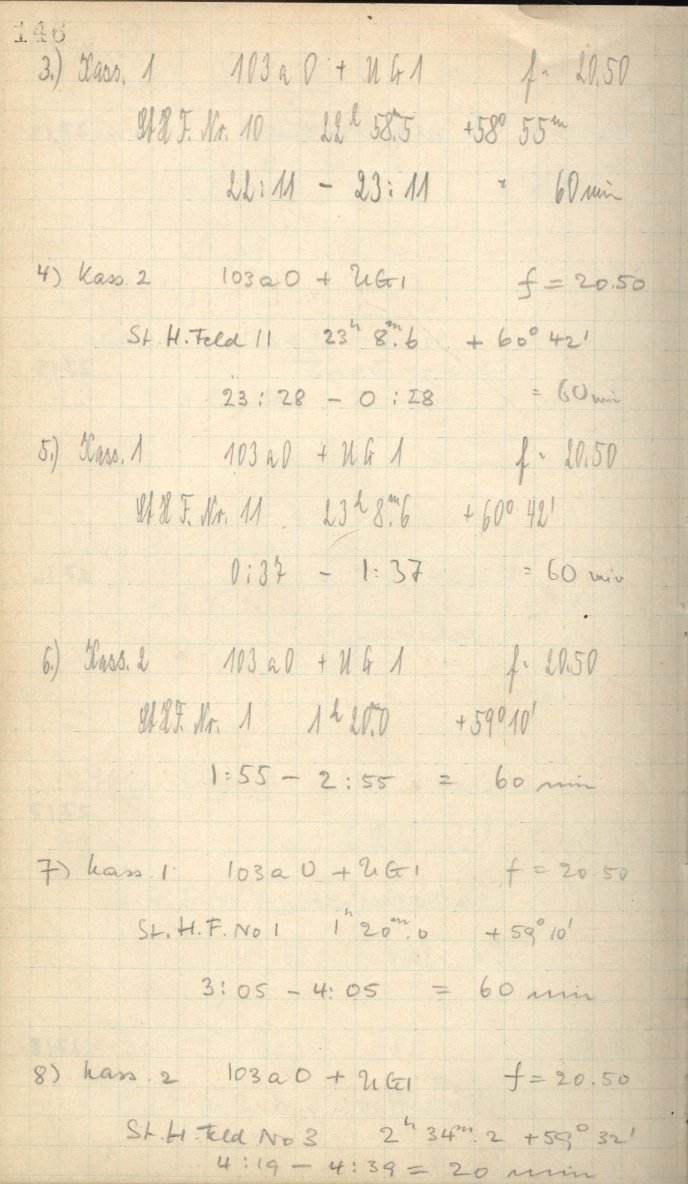 146
3.) Kass. 1 103aO + UG1 f = 20.50
St H F. Nr. 10 22h 58m.5 +58° 55m
22:11 - 23:11 = 60 min
4) Kass. 2 103aO + UG1 f = 20.50
St. H. Feld 11 23h 8m.6 + 60° 42'
23:28 - 0:28 = 60 min
5.) Kass. 1 103aO + UG 1 f = 20.50
St H F. Nr. 11 23h 8m.6 + 60° 42'
0:37 - 1:37 = 60 min
6.) Kass. 2 103aO + UG 1 f = 20.50
St H F. Nr. 1 1h 20m.0 +59° 10'
1:55 - 2:55 = 60 min
7) Kass. 1 103aO + UG1 f = 20.50
St. H. F. No 1 1h 20m.0 +59° 10'
3:05 - 4:05 = 60 min
8) Kass. 2 103aO + UG1 f = 20.50
St. H. Feld No 3 2h 34m.2 +59° 32'
4:19 - 4:39 = 20 min